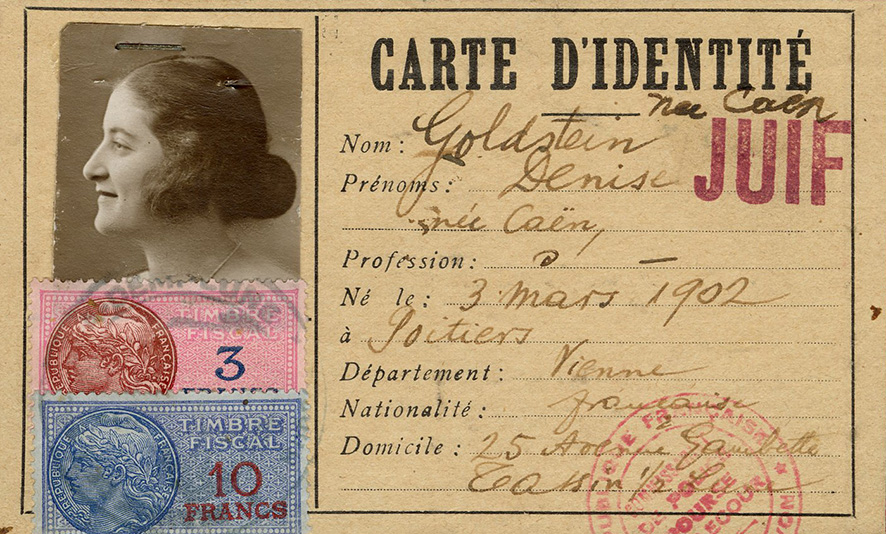 CARTE D'IDENTITÉ
née Caën
Nom: Goldstein
JUIF
Prénoms: Denise
née Caën,
Profession: —
Né le: 3 mars 1902
à Poitiers
Département: Vienne
Nationalité: française
Domicile: 25 Avenue Gambetta
Tassin 1/2 Lune
RÉPUBLIQUE FRANÇAISE
TIMBRE
FISCAL
3
FRANCS
RÉPUBLIQUE FRANÇAISE
TIMBRE
FISCAL
10
FRANCS
FRANÇAISE